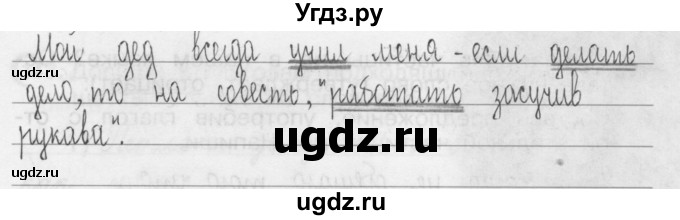 Угдз.ру
Мой дед всегда учил меня - если делать
ugdz.ru
ugdz.ru
дело, то на совесть, "работать засучив
ugdz.ru
рукава".
ugdz.ru
ugdz.ru
ugdz.ru